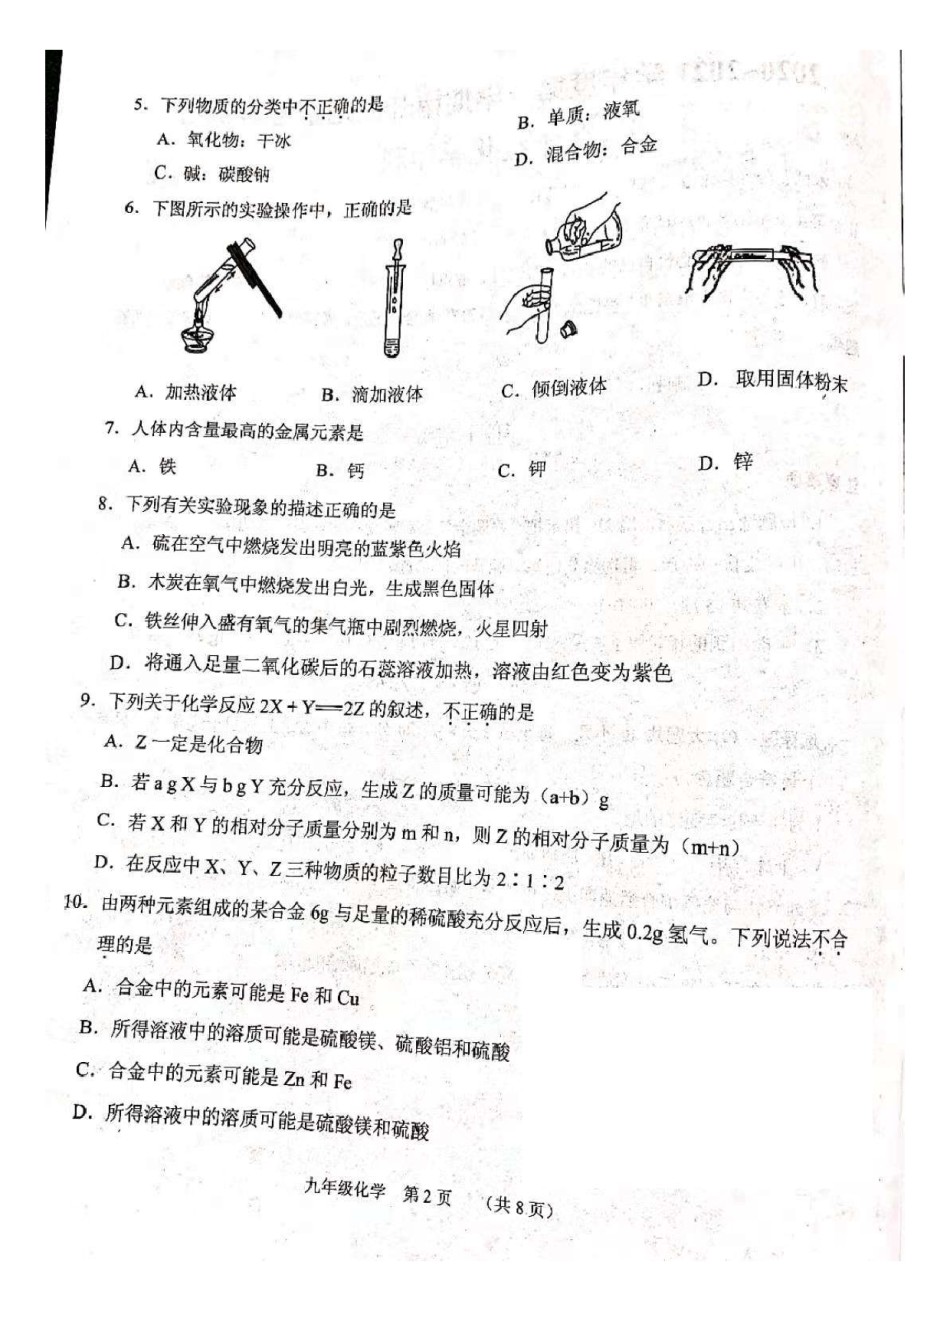 5．下列物质的分类中不正确的是
A．氧化物：干冰
B．单质：液氧
C．碱：碳酸钠
D．混合物：合金
6．下图所示的实验操作中，正确的是
A．加热液体
B．滴加液体
C．倾倒液体
D．取用固体粉末
7．人体内含量最高的金属元素是
A．铁
B．钙
C．钾
D．锌
8．下列有关实验现象的描述正确的是
A．硫在空气中燃烧发出明亮的蓝紫色火焰
B．木炭在氧气中燃烧发出白光，生成黑色固体
C．铁丝伸入盛有氧气的集气瓶中剧烈燃烧，火星四射
D．将通入足量二氧化碳后的石蕊溶液加热，溶液由红色变为紫色
9．下列关于化学反应 2X + Y══2Z 的叙述，不正确的是
A．Z 一定是化合物
B．若 a g X 与 b g Y 充分反应，生成 Z 的质量可能为（a+b）g
C．若 X 和 Y 的相对分子质量分别为 m 和 n，则 Z 的相对分子质量为（m+n）
D．在反应中 X、Y、Z 三种物质的粒子数目比为 2∶1∶2
10．由两种元素组成的某合金 6g 与足量的稀硫酸充分反应后，生成 0.2g 氢气。下列说法不合
理的是
A．合金中的元素可能是 Fe 和 Cu
B．所得溶液中的溶质可能是硫酸镁、硫酸铝和硫酸
C．合金中的元素可能是 Zn 和 Fe
D．所得溶液中的溶质可能是硫酸镁和硫酸
九年级化学 第 2 页 （共 8 页）